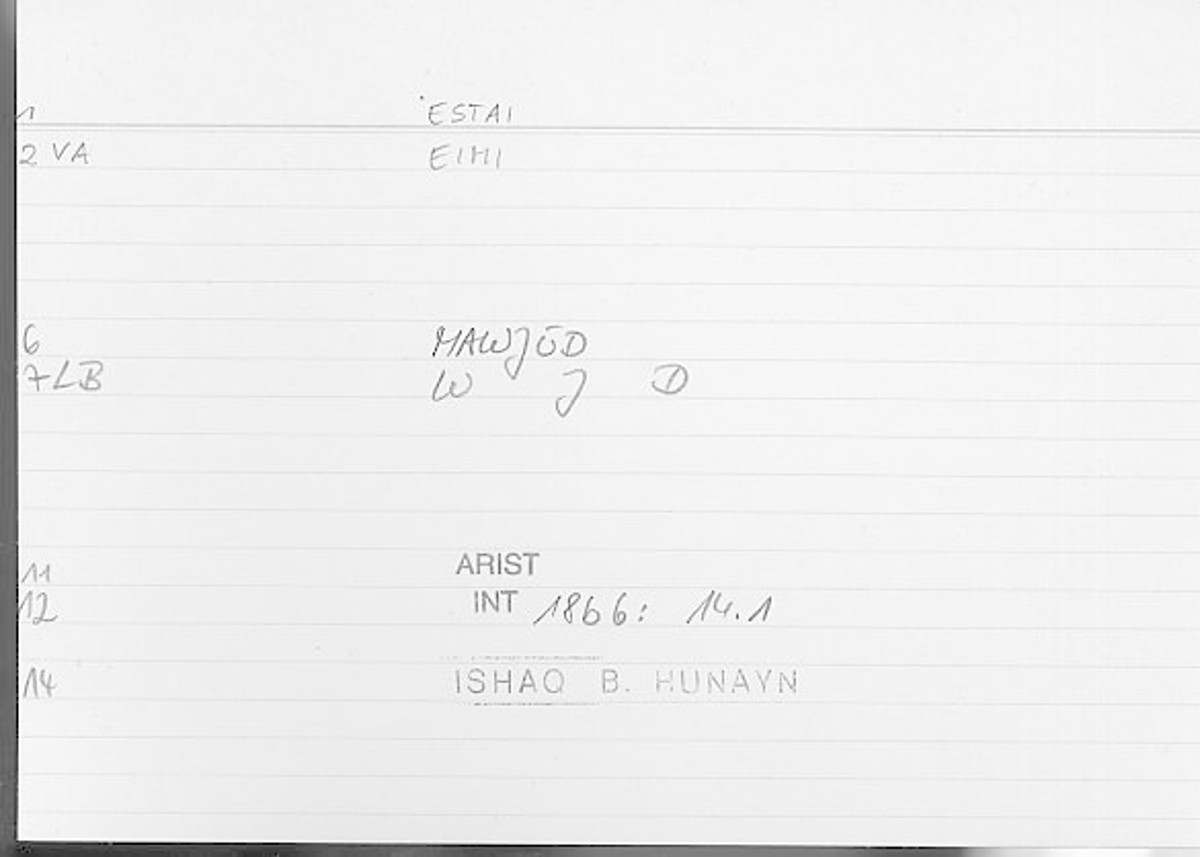 1 ESTAI
2 VA EIMI
6 MAWJŪD
7 LB W J D
11 ARIST
12 INT 18b6: 14.1
14 ISHAQ B. HUNAYN